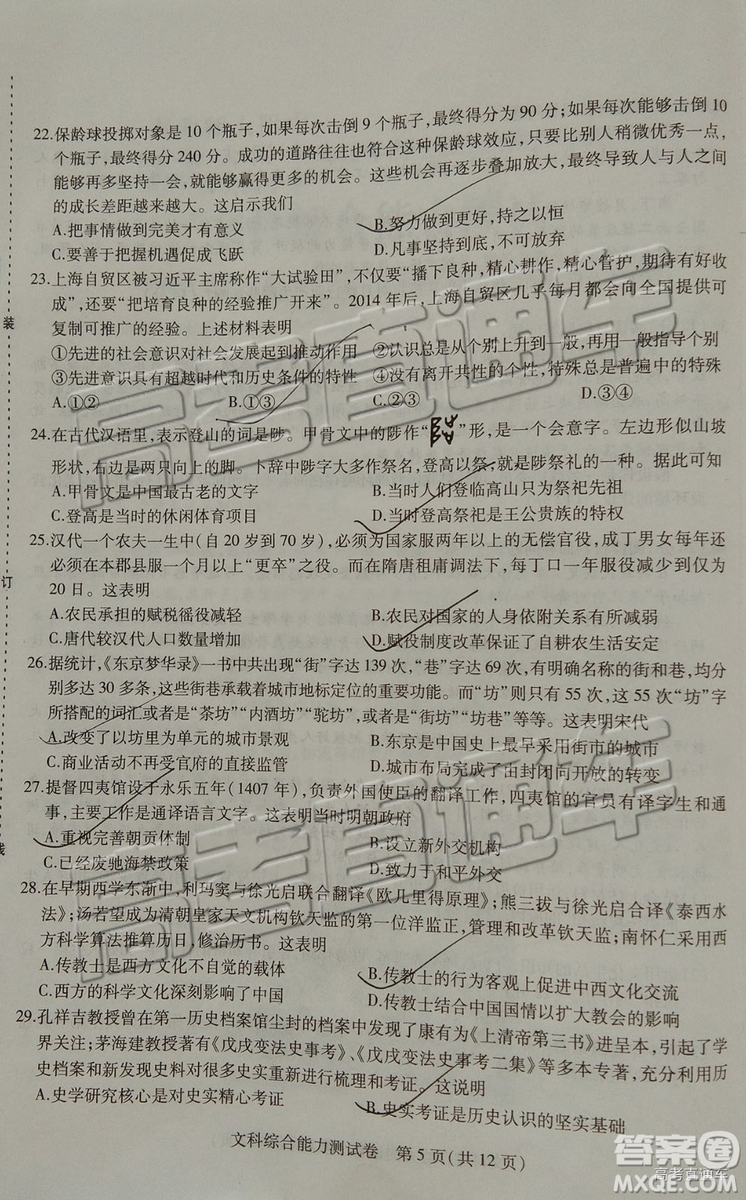 22.保龄球投掷对象是 10 个瓶子,如果每次击倒 9 个瓶子,最终得分为 90 分;如果每次能够击倒 10
个瓶子,最终得分 240 分。成功的道路往往也符合这种保龄球效应,只要比别人稍微优秀一点,
能够再多坚持一会,就能够赢得更多的机会。这些机会再逐步叠加放大,最终导致人与人之间
的成长差距越来越大。这启示我们
A.把事情做到完美才有意义 B.努力做到更好,持之以恒
C.要善于把握机遇促成飞跃 D.凡事坚持到底,不可放弃
23.上海自贸区被习近平主席称作“大试验田”,依然不仅要“播下良种,精心耕作,精心管护,期待好收
成”,还要“把培育良种的经验推广开来”。2014 年后,上海自贸区几乎每月都会向全国提供可
复制可推广的经验。上述材料表明
①先进的社会意识对社会发展起到推动作用 ②认识总是从个别上升到一般,再用一般指导个别
③先进意识具有超越时代和历史条件的特性 ④没有离开共性的个性,特殊总是普遍中的特殊
A.①② B.①③ C.②④ D.③④
24.在古代汉语里,表示登山的词是陟。甲骨文中的陟作“ ”形,是一个会意字。左边形似山坡
形状,右边是两只向上的脚。卜辞中陟字大多作祭名,登高以祭,就是陟祭礼的一种。据此可知
A.甲骨文是中国最古老的文字 B.当时人们登临高山只为祭祀祖先
C.登高是当时的休闲体育项目 D.当时登高祭祀是王公贵族的特权
25.汉代一个农夫一生中(自 20 岁到 70 岁),必须为国家服两年以上的无偿官役,成丁男女每年还
必须在本郡县服一个月以上“更卒”之役。而在隋唐租庸调法下,每丁口一年服役减少到仅为
20 日。这表明
A.农民承担的赋税徭役减轻 B.农民对国家的人身依附关系有所减弱
C.唐代较汉代人口数量增加 D.赋役制度改革保证了自耕农生活安定
26.据统计,《东京梦华录》一书中共出现“街”字达 139 次,“巷”字达 69 次,有明确名称的街和巷,均分
别多达 30 多条,这些街巷承载着城市地标定位的重要功能。而“坊”则只有 55 次,这 55 次“坊”字
所搭配的词汇或者是“茶坊”“内酒坊”“驼坊”,或者是“街坊”“坊巷”等等。这表明宋代
A.改变了以坊里为单元的城市景观 B.东京是中国史上最早采用街市的城市
C.商业活动不再受官府的直接监管 D.城市布局完成了由封闭而开放的转变
27.提督四夷馆设于永乐五年(1407 年),负责外国使臣的翻译工作,四夷馆的官员有译字生和通
事,主要工作是通译语言文字。这表明当时明朝政府
A.重视完善朝贡体制 B.设立新外交机构
C.已经废驰海禁政策 D.致力于和平外交
28.在早期西学东渐中,利马窦与徐光启联合翻译《欧几里得原理》;熊三拔与徐光启合译《泰西水
法》;汤若望成为清朝皇家天文机构钦天监的第一位洋监正,管理和改革钦天监;南怀仁采用西
方科学算法推算历日,修治历书。这表明
A.传教士是西方文化不自觉的载体 B.传教士的行为客观上促进中西文化交流
C.西方的科学文化深刻影响了中国 D.传教士结合中国国情以扩大教会的影响
29.孔祥吉教授曾在第一历史档案馆尘封的档案中发现了康有为《上清帝第三书》进呈本,引起学
界关注;茅海建教授著有《戊戌变法史事考》、《戊戌变法史事考二集》等多本专著,充分利用历
史档案和新发现史料对很多史实重新进行梳理和考证。这说明
A.史学研究核心是对史实精心考证 B.史实考证是历史认识的坚实基础
文科综合能力测试卷 第 5 页(共 12 页)
装
订
线
高考直通车
高考直通车
答案圈
高考直通车
MXQE.COM